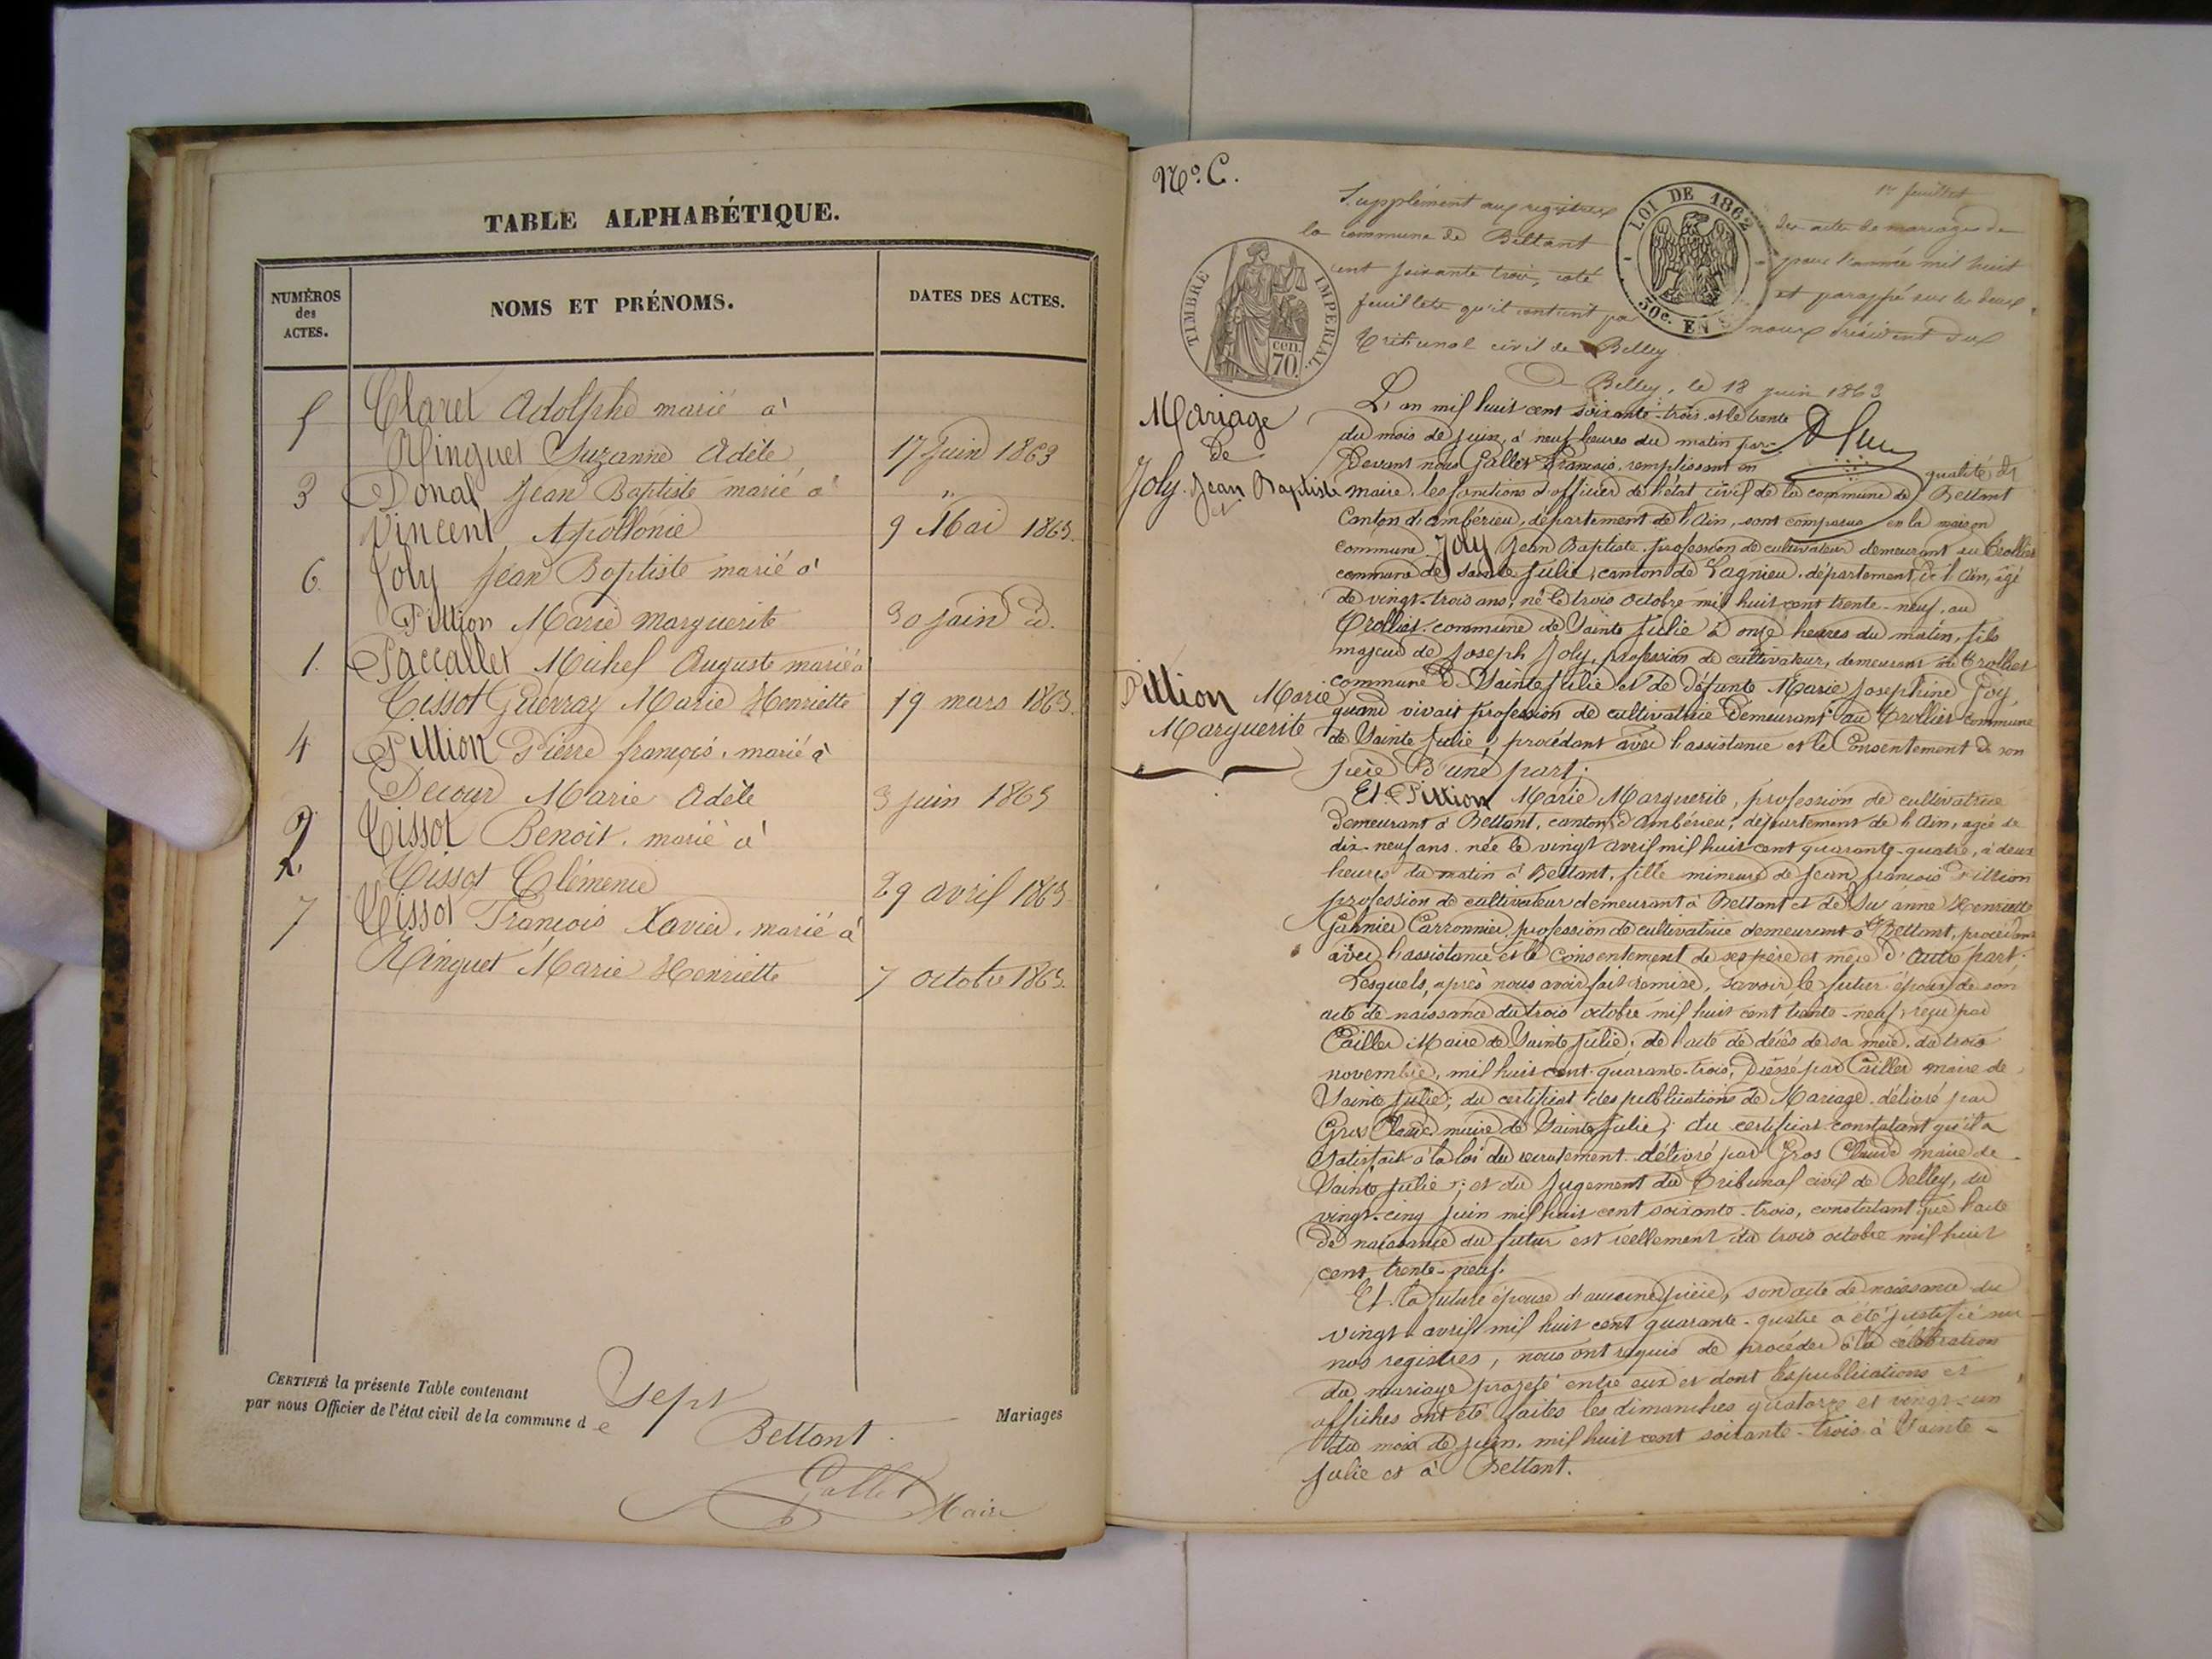 TABLE ALPHABÉTIQUE.
NUMÉROS des ACTES.
NOMS ET PRÉNOMS.
DATES DES ACTES.
5 Claret Adolphe marié à
Ringuet Suzanne Adèle 17 Juin 1863
3 Donat Jean Baptiste marié à "
Vincent Apollonie 9 Mai 1863.
6. Joly Jean Baptiste marié à
Pittion Marie Marguerite 30 juin d.
1. Paccallet Michel Auguste marié à
Tissot Guerraz Marie Henriette 19 mars 1863.
4 Pittion Pierre françois, marié à
Decour Marie Adèle 3 juin 1863
2 Tissot Benoit, marié à
2. Tissot Clémence 29 avril 1863
7 Tissot François Xavier, marié à
Ringuet Marie Henriette 7 octobre 1863.
CERTIFIÉ la présente Table contenant sept Mariages
par nous Officier de l'état civil de la commune de Bettant.
Gallet Maire
No. C.
1er feuillet
Supplément aux registres des actes de mariages de
la commune de Bettant pour l'année mil huit
cent soixante trois, coté et paraphé sur les deux
feuillets qu'il contient par nous Président du
Tribunal civil de Belley.
LOI DE 1862
50c. EN S
TIMBRE IMPERIAL
cen. 70.
Belley, le 18 juin 1863
Mariage
de
Joly Jean Baptiste
et
Pittion Marie
Marguerite
L'an mil huit cent soixante-trois et le trente
du mois de juin, à neuf heures du matin par-
Devant nous Gallet François, remplissant en qualité de
maire, les fonctions d'officier de l'état civil de la commune de Bettant
Canton d'ambérieu, département de l'Ain, sont comparus en la maison
commune Joly Jean Baptiste, profession de cultivateur demeurant au Trollier
commune de Sainte Julie, canton de Lagnieu, département de l'Ain, âgé
de vingt-trois ans, né le trois octobre mil huit cent trente-neuf, au
Trollier commune de Sainte Julie à onze heures du matin, fils
majeur de Joseph Joly, profession de cultivateur, demeurant au Trollier
commune de Sainte Julie et de défunte Marie Josephine Goy
quand vivait profession de cultivatrice Demeurant au Trollier commune
de Sainte Julie, procédant avec l'assistance et le Consentement de son
père D'une part;
Et Pittion Marie Marguerite, profession de cultivatrice
Demeurant à Bettant, canton d'Ambérieu, département de l'Ain, agée de
dix-neuf ans née le vingt avril mil huit cent quarante-quatre, à deux
heures du matin à Bettant, fille mineure de Jean françois Pittion
profession de cultivateur demeurant à Bettant et de Suzanne Henriette
Garnier Carronnier, profession de cultivatrice demeurant à Bettant, procédant
avec l'assistance et le Consentement de ses père et mère d'autre part.
Lesquels, après nous avoir fait remise, savoir le futur époux de son
acte de naissance du trois octobre mil huit cent trente-neuf, reçu par
Cailler Maire de Sainte Julie; de l'acte de décès de sa mère, du trois
novembre, mil huit cent quarante-trois, Dressé par Cailler maire de
Sainte Julie; du certificat des publications de Mariage délivré par
Gros Claude maire de Sainte Julie; du certificat constatant qu'il a
satisfait à la loi du recrutement délivré par Gros Claude maire de
Sainte Julie; et du Jugement du Tribunal civil de Belley, du
vingt-cinq juin mil huit cent soixante-trois, constatant que l'acte
de naissance du futur est réellement du trois octobre mil huit
cent trente-neuf.
Et la future épouse d'aucune pièce, son acte de naissance du
vingt avril mil huit cent quarante-quatre a été justifié sur
nos registres, nous ont requis de procéder à la célébration
du mariage projeté entre eux et dont les publications et
affiches ont été faites les dimanches quatorze et vingt-un
du mois de juin, mil huit cent soixante-trois à Sainte-
Julie et à Bettant.